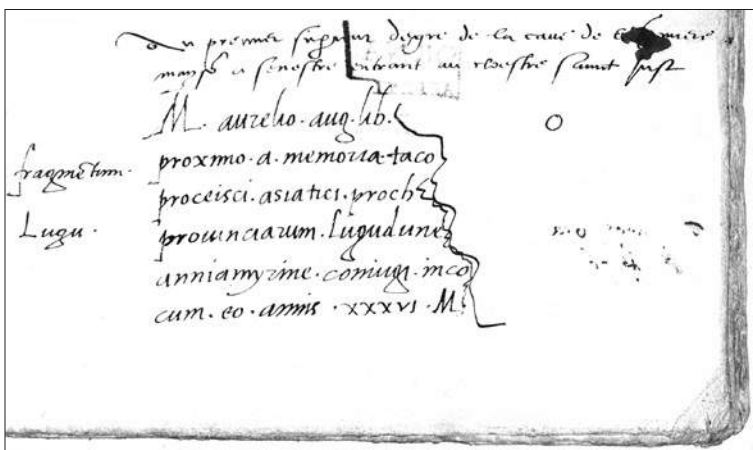 Au premier supérieur degre de la cave de
mayso a senestre entrant au cloestre saint Just
M. aurelio. aug. lib.
proxmo. a. memoria. taco
fragmentum.
proceisci. asiatici. proche
Lugu.
prouinciarum. lugudune
anniamyrine. coniugi. inco
cum. eo. annis. xxxvi. M